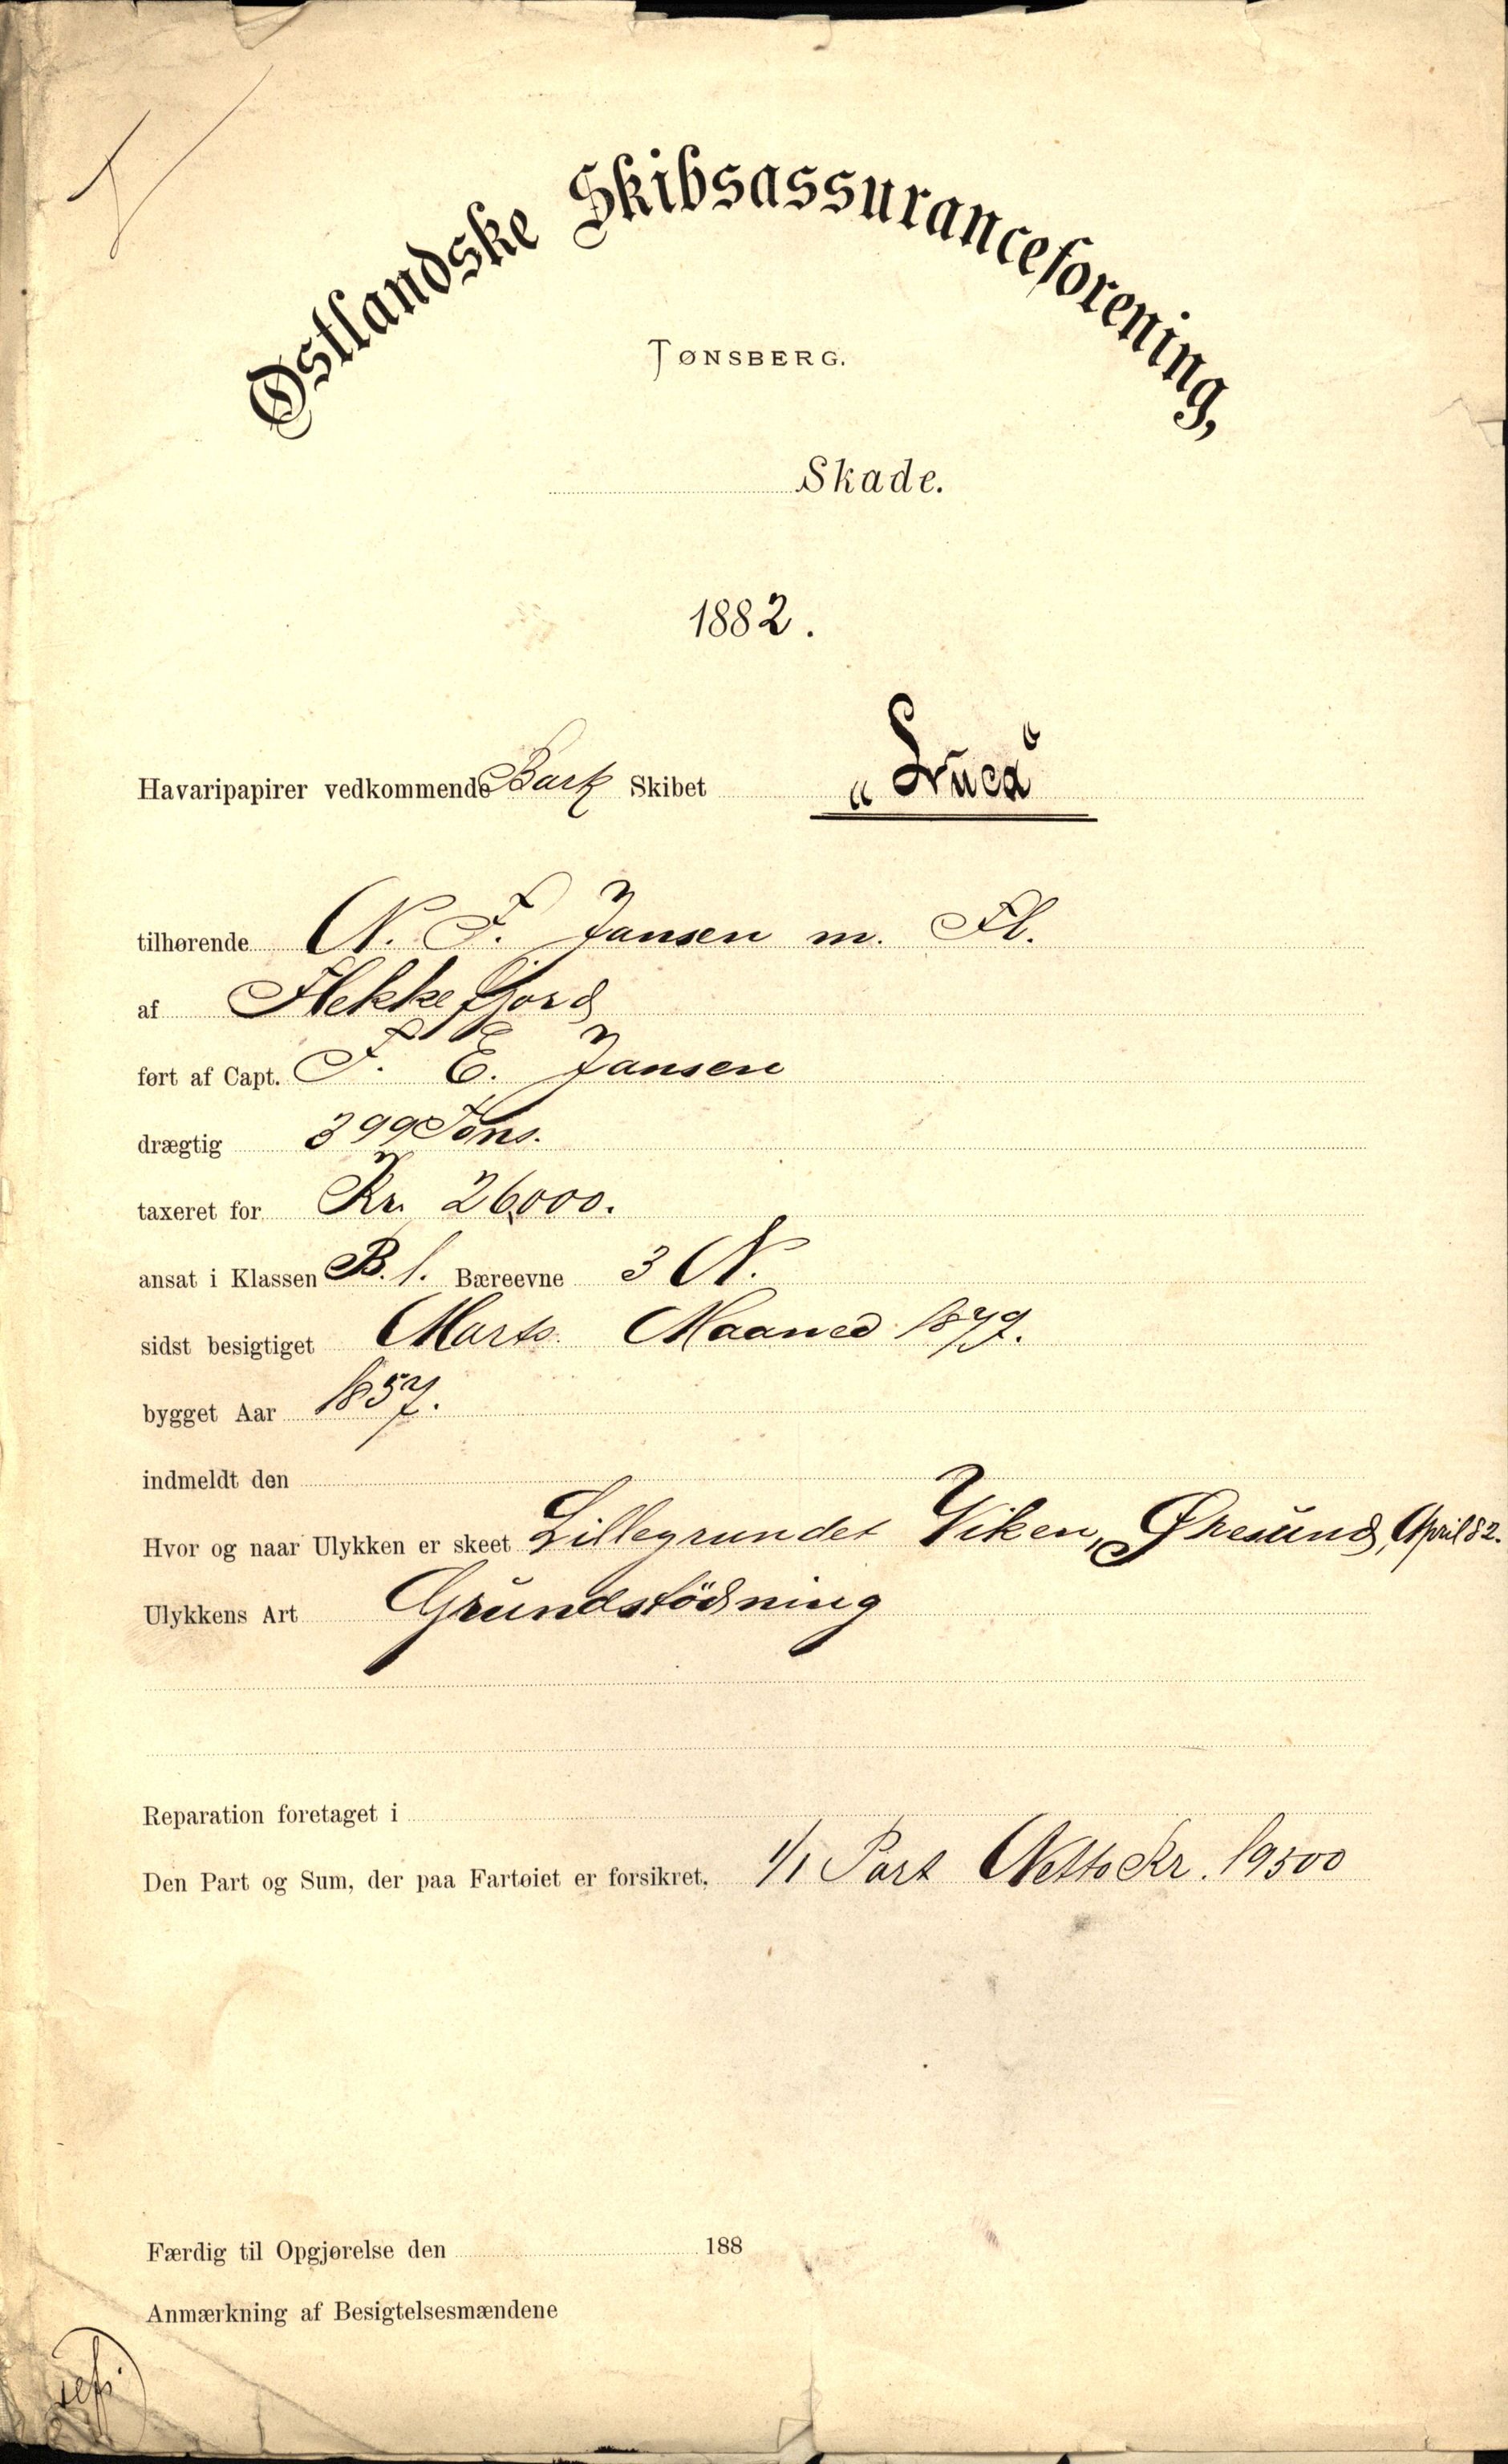 Østlandske Skibsassuranceforening,
TØNSBERG.
Skade.
1882.
Havaripapirer vedkommende Bark Skibet „Luca“
tilhørende N. F. Jansen m. Fl.
af Flekkefjord
ført af Capt. F. E. Jansen
drægtig 399 Tons.
taxeret for Kr. 26,000.
ansat i Klassen B. 1. Bæreevne 3 N.
sidst besigtiget Marts Maaned 1879.
bygget Aar 1857.
indmeldt den
Hvor og naar Ulykken er skeet Lillegrundet Viken, Øresund, April 82.
Ulykkens Art Grundstödning
Reparation foretaget i
Den Part og Sum, der paa Fartøiet er forsikret, 1/1 Part Netto Kr. 19500
Færdig til Opgjørelse den 188
Anmærkning af Besigtelsesmændene